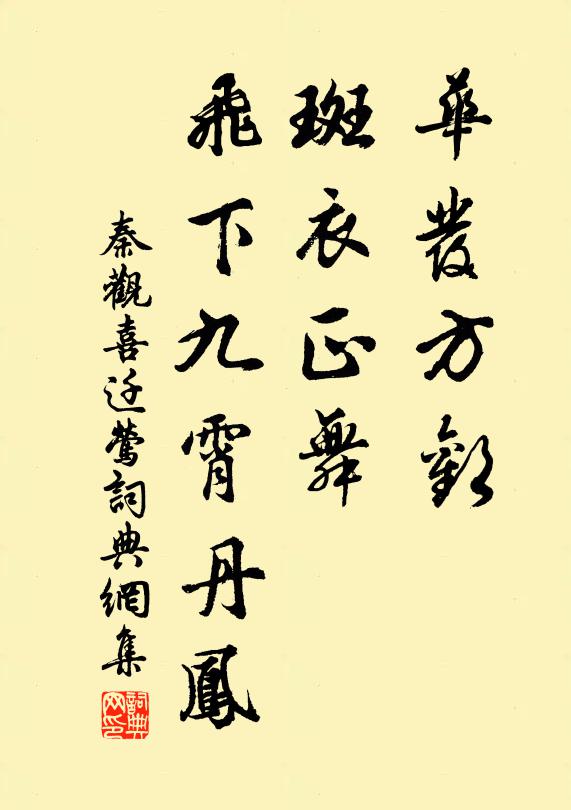 華發方歡
斑衣正舞
飛下九霄丹鳳
秦觀喜迁鶯詞典網集
詞典网印